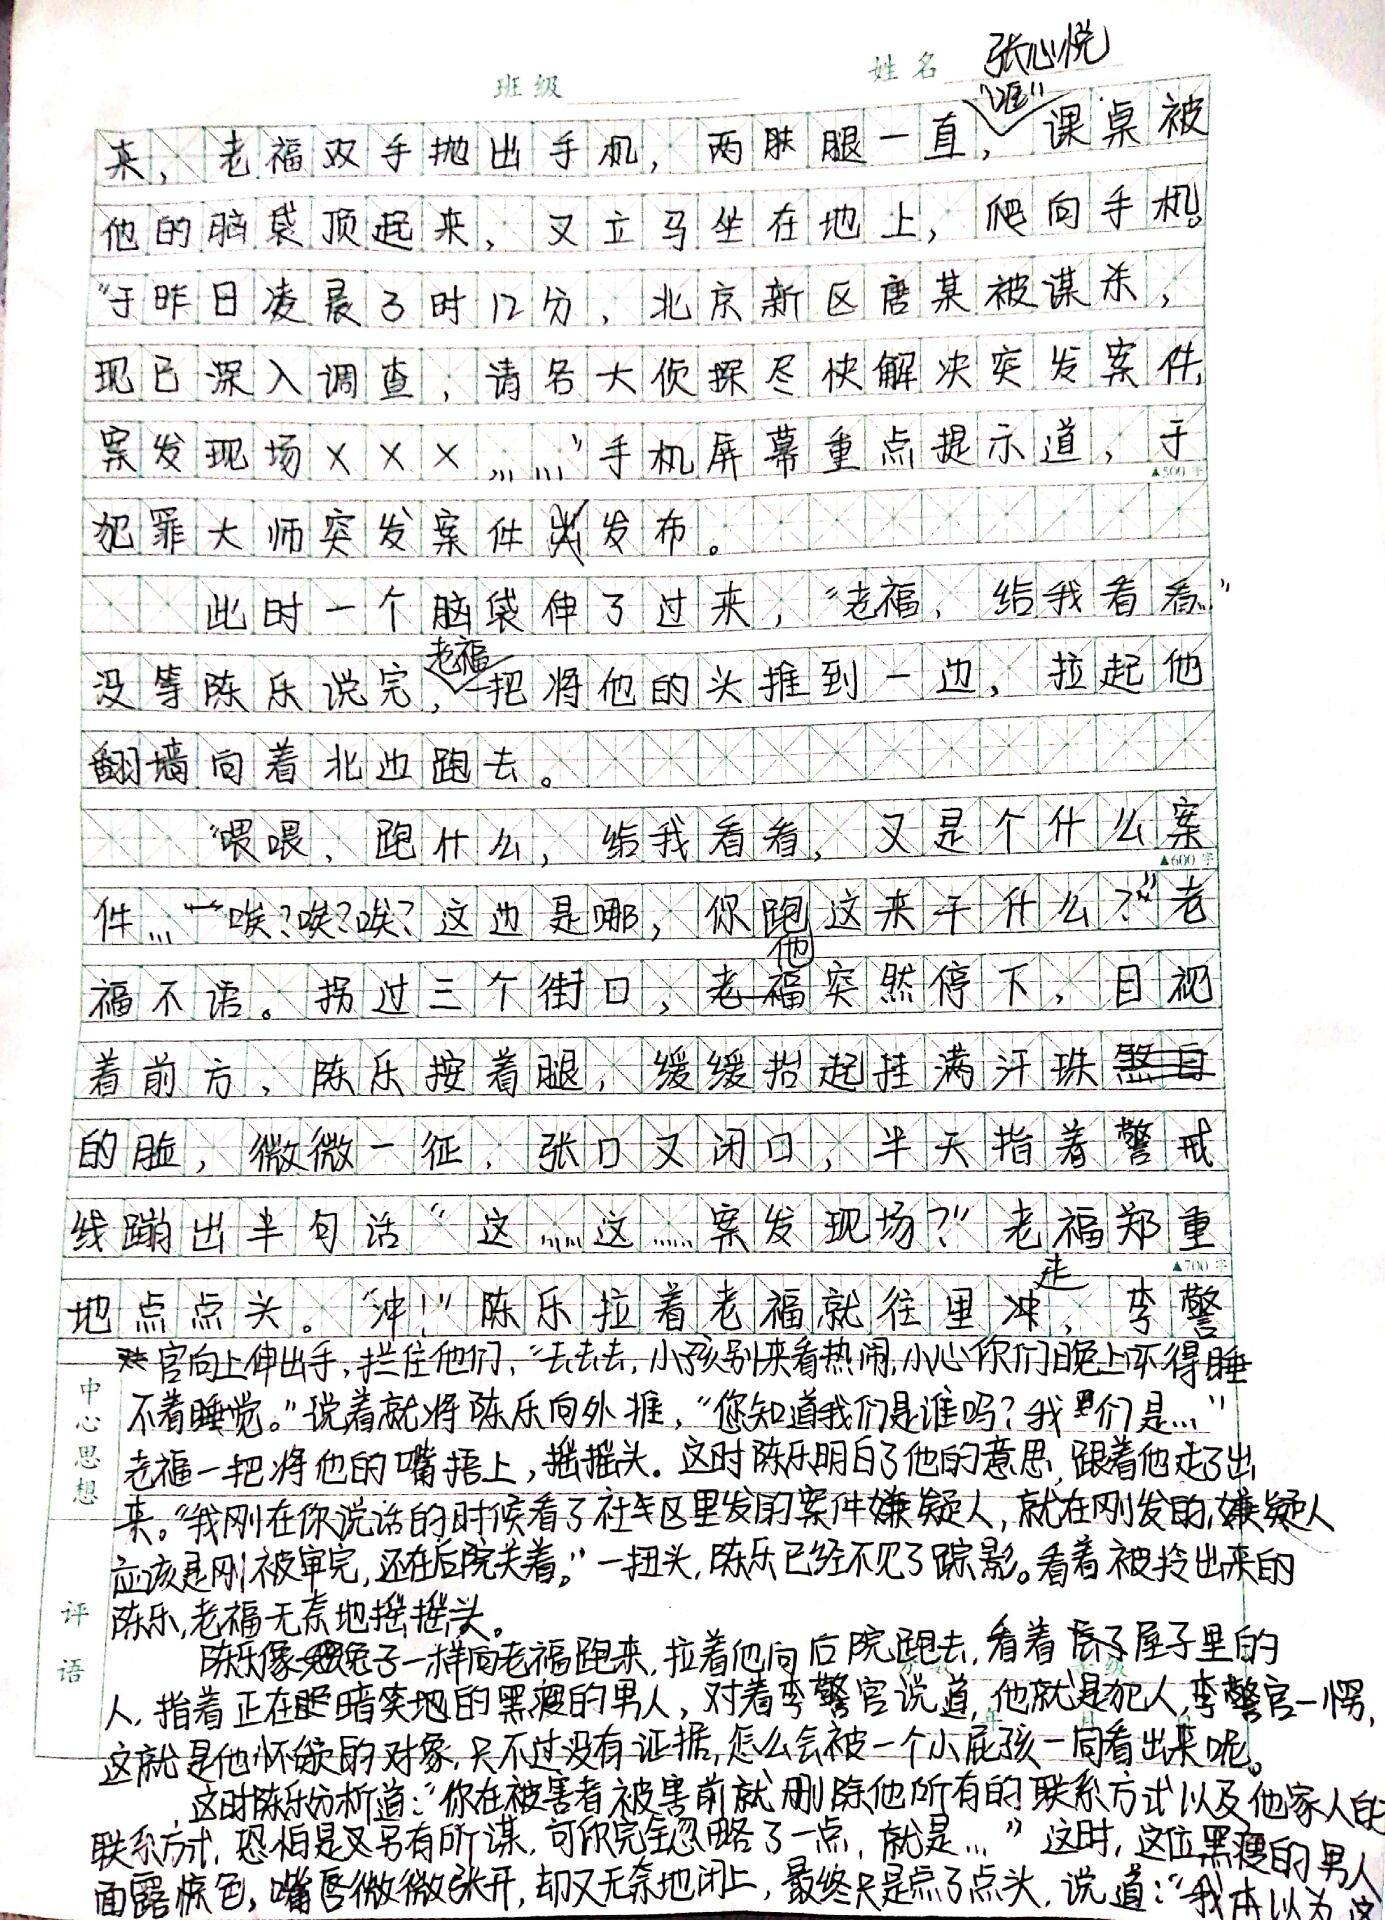 班级 姓名 张心悦
来，老福双手抛出手机，两肤腿一直，“哐”课桌被
他的脑袋顶起来，又立马坐在地上，爬向手机。
“于昨日凌晨3时12分，北京新区唐某被谋杀，
现已深入调查，请名大侦探尽快解决突发案件，
案发现场×××……”手机屏幕重点提示道，于
▲500字
犯罪大师突发案件发布。
此时一个脑袋伸了过来，“老福，给我看看。”
没等陈乐说完，老福一把将他的头推到一边，拉起他
翻墙向着北边跑去。
“喂喂，跑什么，给我看看，又是个什么案
▲600字
件…唉？唉？唉？这边是哪，你跑这来干什么？”老
福不语。拐过三个街口，他突然停下，目视
着前方，陈乐按着腿，缓缓抬起挂满汗珠
的脸，微微一征，张口又闭口，半天指着警戒
线蹦出半句话“这……这……案发现场？”老福郑重
▲700字
地点点头。“冲！”陈乐拉着老福就往里走，李警
官向上伸出手，拦住他们，“去去去，小孩别来看热闹，小心你们晚上不得睡
不着睡觉。”说着就将陈乐向外推，“您知道我们是谁吗？我们是…”
老福一把将他的嘴捂上，摇摇头。这时陈乐明白了他的意思，跟着他走了出
来。“我刚在你说话的时候看了社区里发的案件嫌疑人，就在刚发的，嫌疑人
应该是刚被审完，还在后院关着。”一扭头，陈乐已经不见了踪影。看着被拎出来的
陈乐，老福无奈地摇摇头。
陈乐像兔子一样向老福跑来，拉着他向后院跑去，看着屋子里的
人，指着正在暗笑地的黑瘦的男人，对着李警官说道，他就是犯人，李警官一愣，
这就是他怀疑的对象，只不过没有证据，怎么会被一个小屁孩一同看出来呢。
这时陈乐分析道：“你在被害者被害前就删除他所有的联系方式以及他家人的
联系方式，恐怕是又另有所谋，可你完全忽略了一点，就是…”这时，这位黑瘦的男人
面露惊色，嘴唇微微张开，却又无奈地闭上，最终只是点了点头，说道：“我本以为这
中心思想
评语